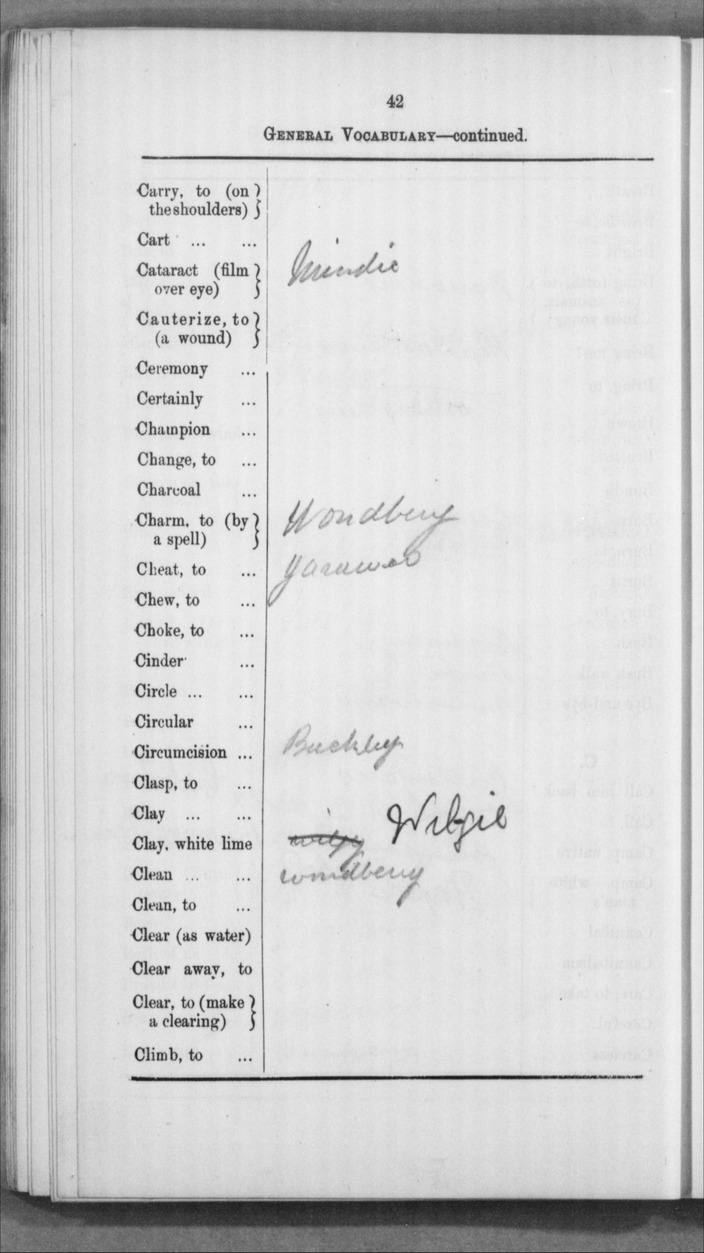 42
GENERAL VOCABULARY—continued.
Carry, to (on
the shoulders)
Cart ... ...
Cataract (film
over eye) Mindie
Cauterize, to
(a wound)
Ceremony ...
Certainly ...
Champion ...
Change, to ...
Charcoal ...
Charm, to (by
a spell) Wondberry
Cheat, to ...
Chew, to ...
Choke, to ...
Cinder ...
Circle ... ...
Circular ...
Circumcision ... Buckley
Clasp, to ...
Clay ... ...
Clay, white lime wilgy Wilgie
Clean ... ... wondberry
Clean, to ...
Clear (as water)
Clear away, to
Clear, to (make
a clearing)
Climb, to ...